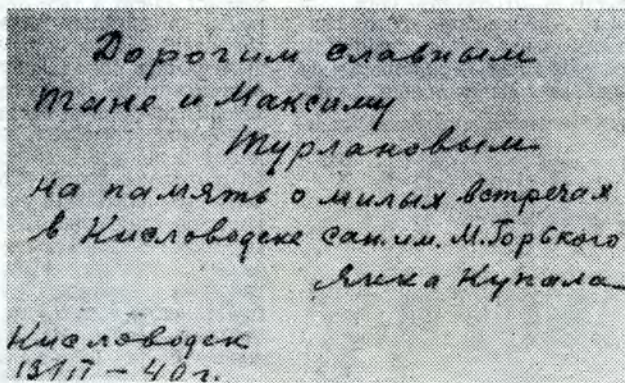 Дорогим славным
Тане и Максиму
Турлановым
на память о милых встречах
в Кисловодске сан. им. М. Горького
Янка Купала
Кисловодск
40 г.